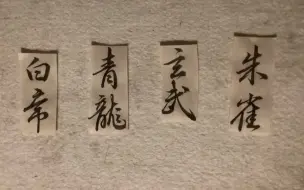 朱雀
玄武
青龍
白虎